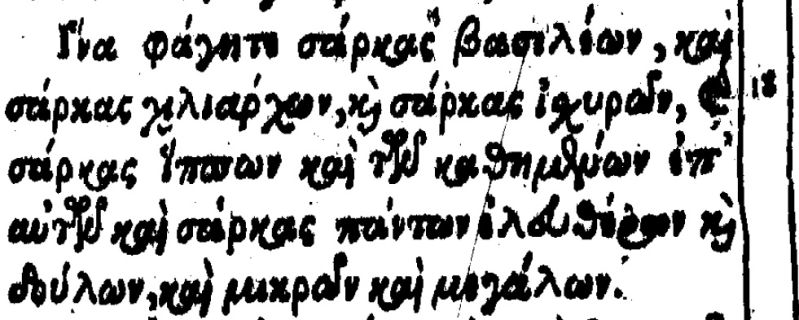 Ἵνα φάγητε σάρκας βασιλέων, καὶ
σάρκας χιλιάρχων, κὶ σάρκας ἰχυρῶν, καὶ 18
σάρκας ἵππων καὶ τῶν καθημένων ἐπ'
αὐτῶν καὶ σάρκας πάντων ἐλευθέρων κὶ
δούλων, καὶ μικρῶν καὶ μεγάλων.